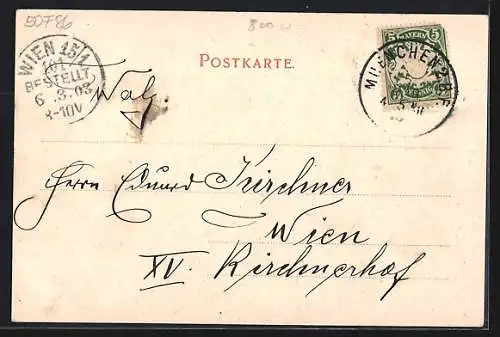 50786
800
WIEN 15/1
101
BESTELLT
6.3.03
8-10V
POSTKARTE.
5 BAYERN 5
PFENNIG
MUENCHEN 2. B.P.
Herrn Eduard Kirchner
Wien
XV. Kirchnerhof